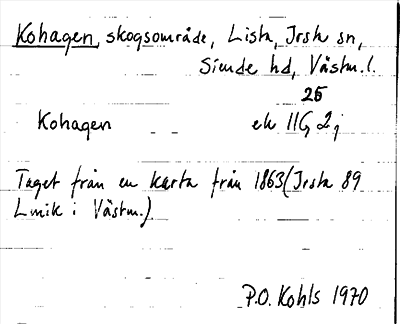 Kohagen, skogsområde, Lista, Irsta sn,
Siende hd, Västm. l.
25
Kohagen ek 11G 2j
Taget från en karta från 1863 (Irsta 89
Lmik i Västm.)
P.O. Kohls 1970